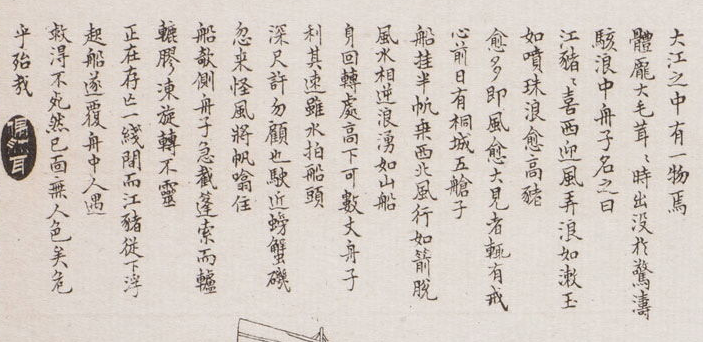 大江之中有一物焉
體龐大毛茸〻時出没於驚濤
駭浪中舟子名之曰
江豬〻喜西迎風弄浪如漱玉
如噴珠浪愈高豬
愈多即風愈大見者輒有戒
心前日有桐城五艙子
船挂半帆乗西北風行如箭脫
風水相逆浪湧如山船
身回轉處高下可數丈舟子
利其速雖水拍船頭
深尺許勿顧也駛近螃蟹磯
忽来怪風將帆噏住
船欹側舟子急截蓬索而轤
轆膠凍旋轉不靈
正在存亡一綫間而江豬從下浮
起船遂覆舟中人遇
救得不死然已面無人色矣危
乎殆哉